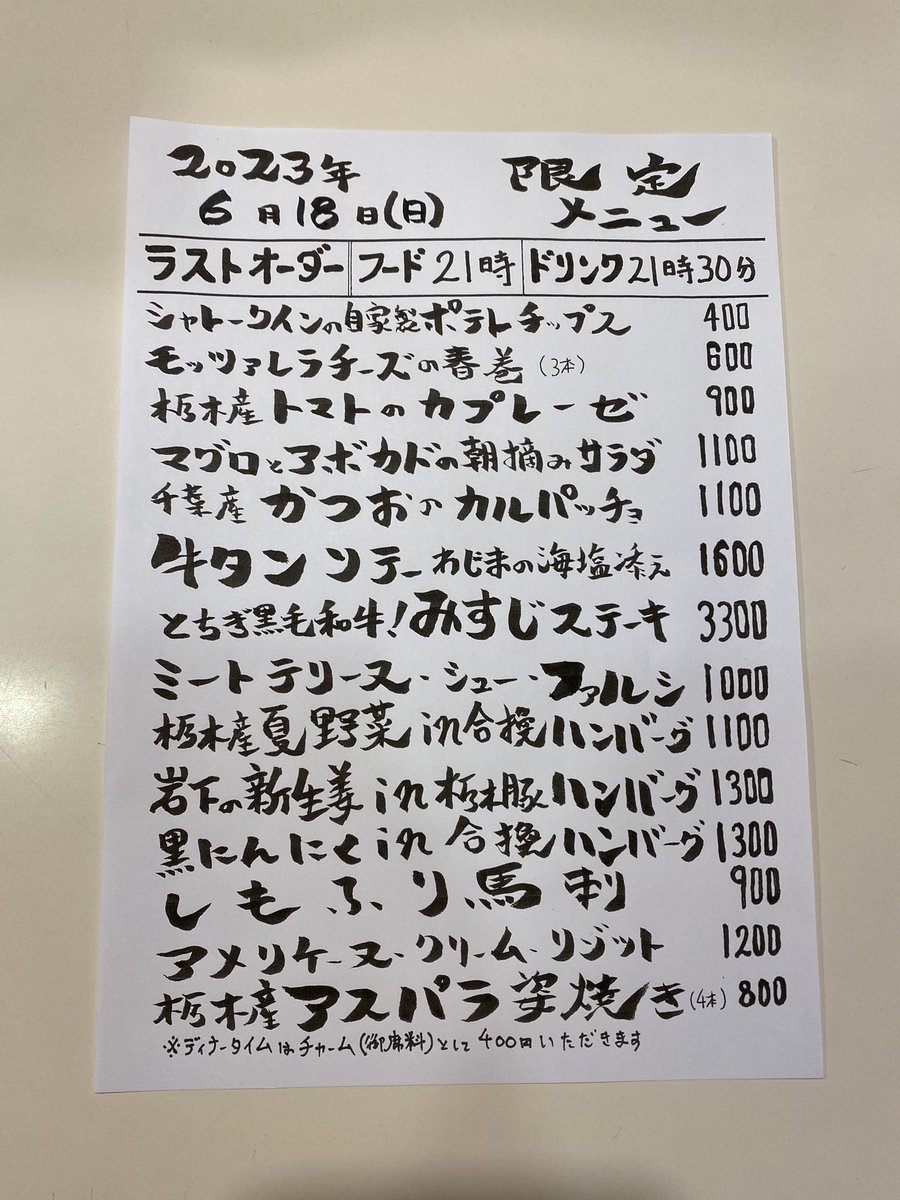 2023年 限定
6月18日(日) メニュー
ラストオーダー フード21時 ドリンク21時30分
シャトークインの自家製ポテトチップス 400
モッツァレラチーズの春巻(3本) 600
栃木産トマトのカプレーゼ 900
マグロとアボカドの朝摘みサラダ 1100
千葉産かつおのカルパッチョ 1100
牛タンソテーわじまの海塩添え 1600
とちぎ黒毛和牛!みすじステーキ 3300
ミートテリーヌ・シュー・ファルシ 1000
栃木産夏野菜in合挽ハンバーグ 1100
岩下の新生姜in栃木豚ハンバーグ 1300
黒にんにくin合挽ハンバーグ 1300
しもふり馬刺 900
アメリケーヌ・クリーム・リゾット 1200
栃木産アスパラ姿焼き(4本) 800
※ディナータイムはチャーム(御席料)として400円いただきます